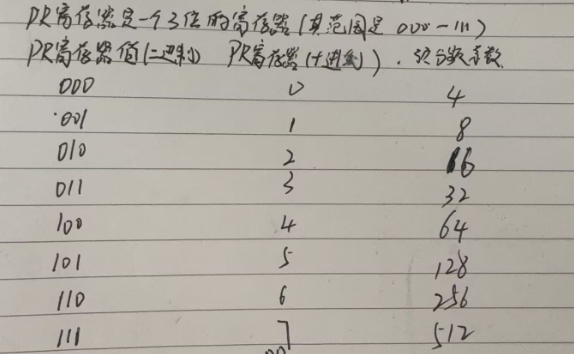 PR寄存器是一个3位的寄存器(其范围是 000-111)
PR寄存器值(二进制) PR寄存器(十进制). 预分频系数
000 0 4
001 1 8
010 2 16
011 3 32
100 4 64
101 5 128
110 6 256
111 7 512